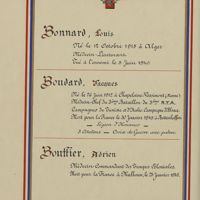 Bonnard, Louis
Né le 12 Octobre 1915 à Alger
Médecin-Lieutenant
Tué à l'ennemi le 5 Juin 1940
Boudard, Jacques
Né le 26 Juin 1912 à Chapelaine
Médecin-Chef du 3ème Bataillon du 3ème R.T.A.
Campagnes de Tunisie et d'Italie Campagne d'Alsace
Mort pour la France le 30 Janvier 1945 à
Légion d'Honneur
3 Citations - Croix de Guerre avec palme
Bouffier, Adrien
Médecin-Commandant des Troupes Coloniales
Mort pour la France à Mulhouse, le 23 Janvier 1945